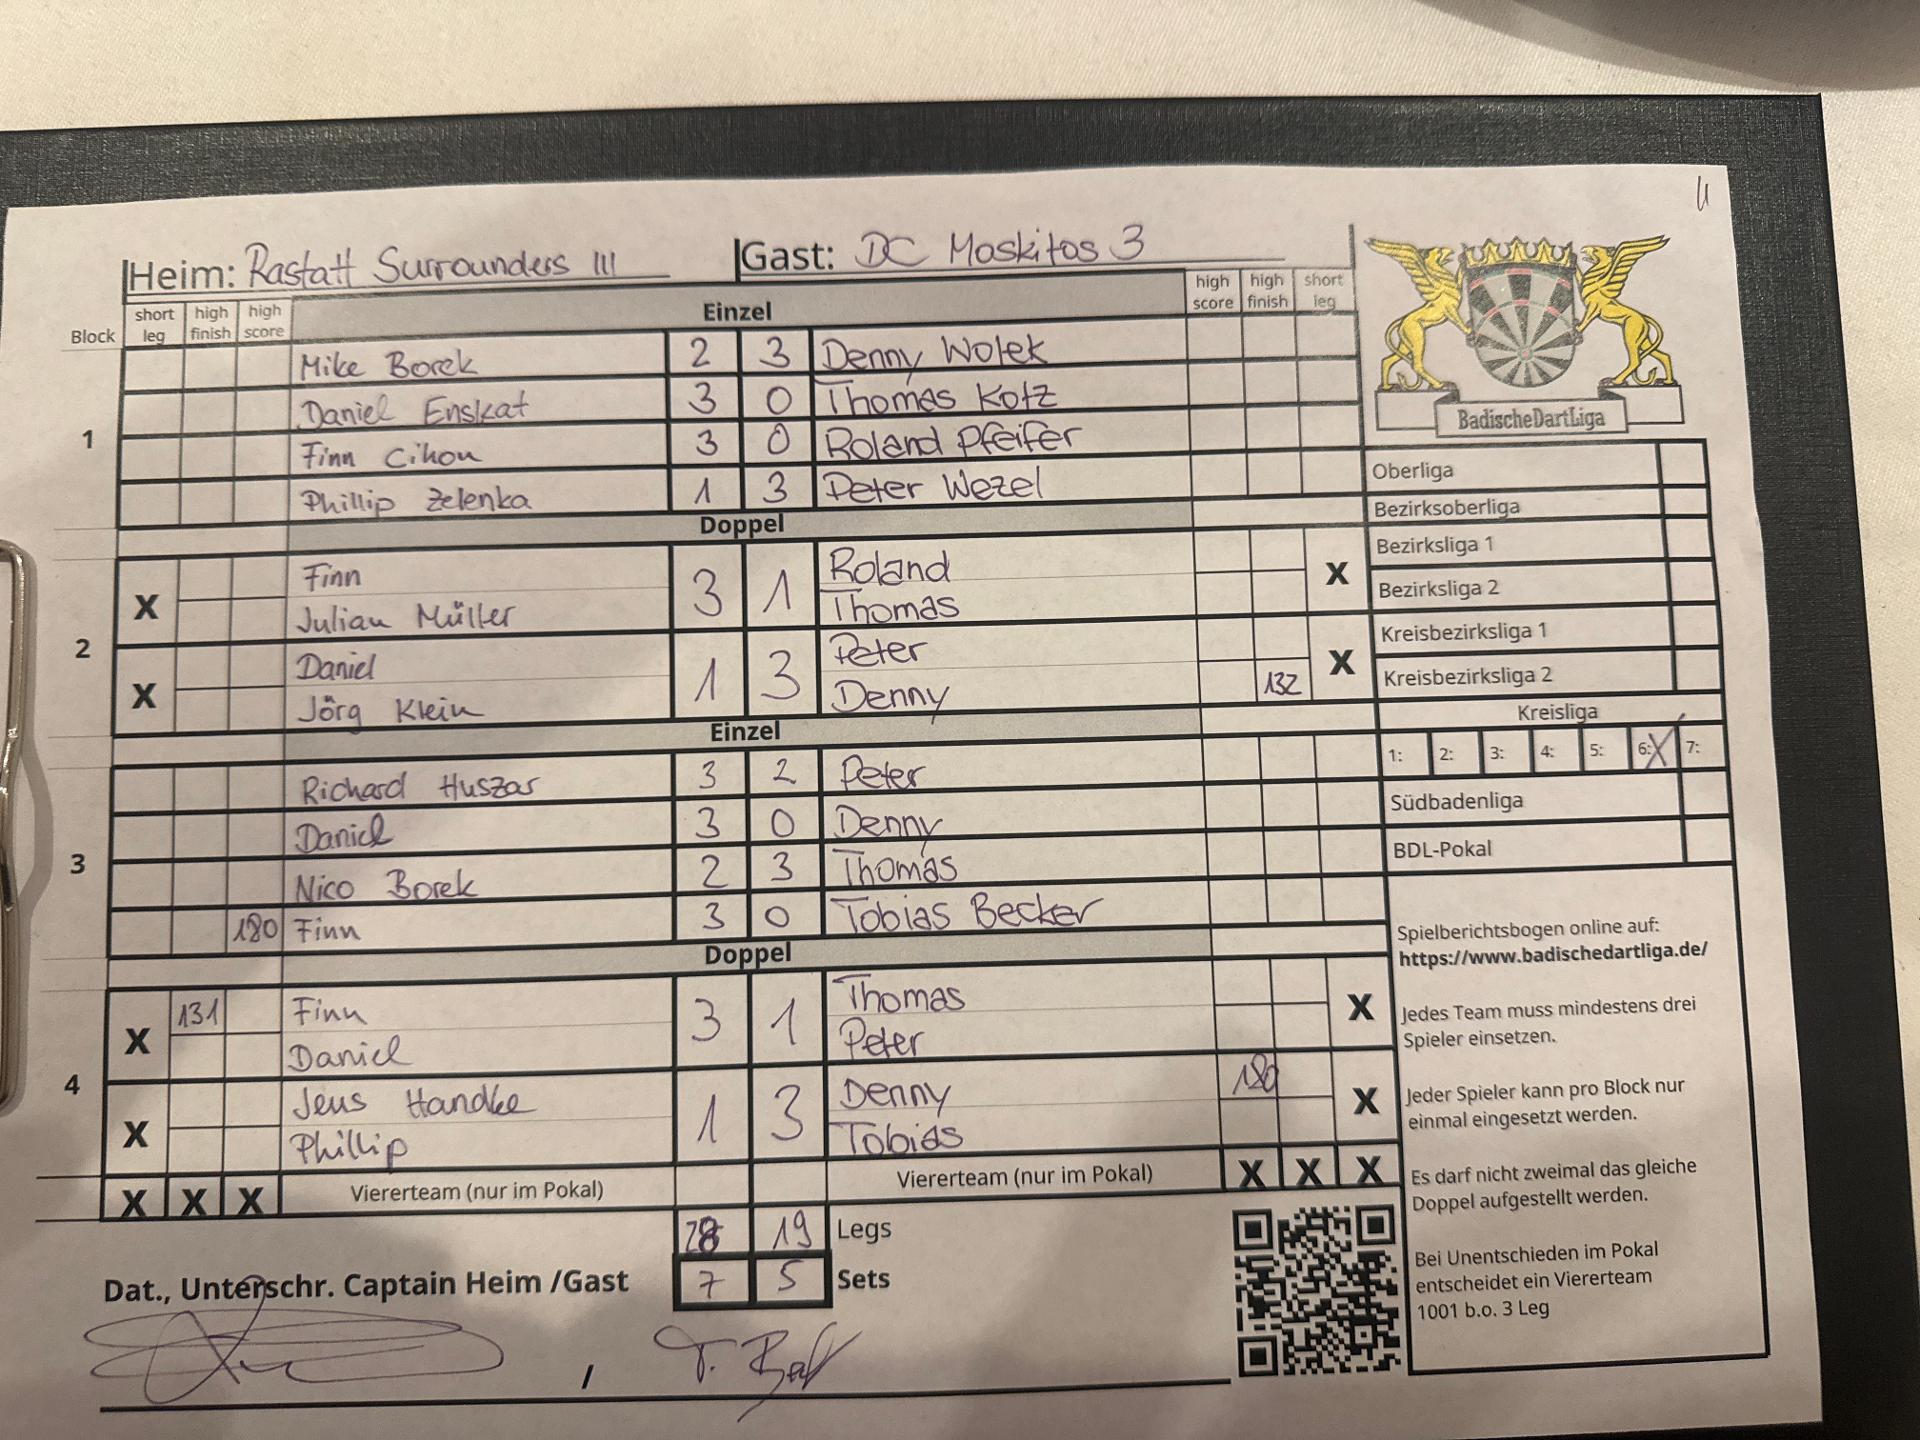 Heim: Rastatt Surrounders III Gast: DC Moskitos 3
Block short leg high finish high score Einzel high score high finish short leg
1
Mike Borek 2 3 Denny Wolek
Daniel Enskat 3 0 Thomas Kotz
Finn Cihon 3 0 Roland Pfeifer
Phillip Zelenka 1 3 Peter Wezel
Doppel
2
X Finn 3 1 Roland X
Julian Müller Thomas
X Daniel 1 3 Peter X
Jörg Klein Denny 132
Einzel
3
Richard Huszar 3 2 Peter
Daniel 3 0 Denny
Nico Borek 2 3 Thomas
180 Finn 3 0 Tobias Becker
Doppel
4
X 131 Finn 3 1 Thomas X
Daniel Peter
X Jens Handke 1 3 Denny 180 X
Phillip Tobias
X X X Viererteam (nur im Pokal) Viererteam (nur im Pokal) X X X
28 19 Legs
7 5 Sets
Dat., Unterschr. Captain Heim /Gast
/
BadischeDartLiga
Oberliga
Bezirksoberliga
Bezirksliga 1
Bezirksliga 2
Kreisbezirksliga 1
Kreisbezirksliga 2
Kreisliga
1: 2: 3: 4: 5: 6: X 7:
Südbadenliga
BDL-Pokal
Spielberichtsbogen online auf:
https://www.badischedartliga.de/
Jedes Team muss mindestens drei
Spieler einsetzen.
Jeder Spieler kann pro Block nur
einmal eingesetzt werden.
Es darf nicht zweimal das gleiche
Doppel aufgestellt werden.
Bei Unentschieden im Pokal
entscheidet ein Viererteam
1001 b.o. 3 Leg